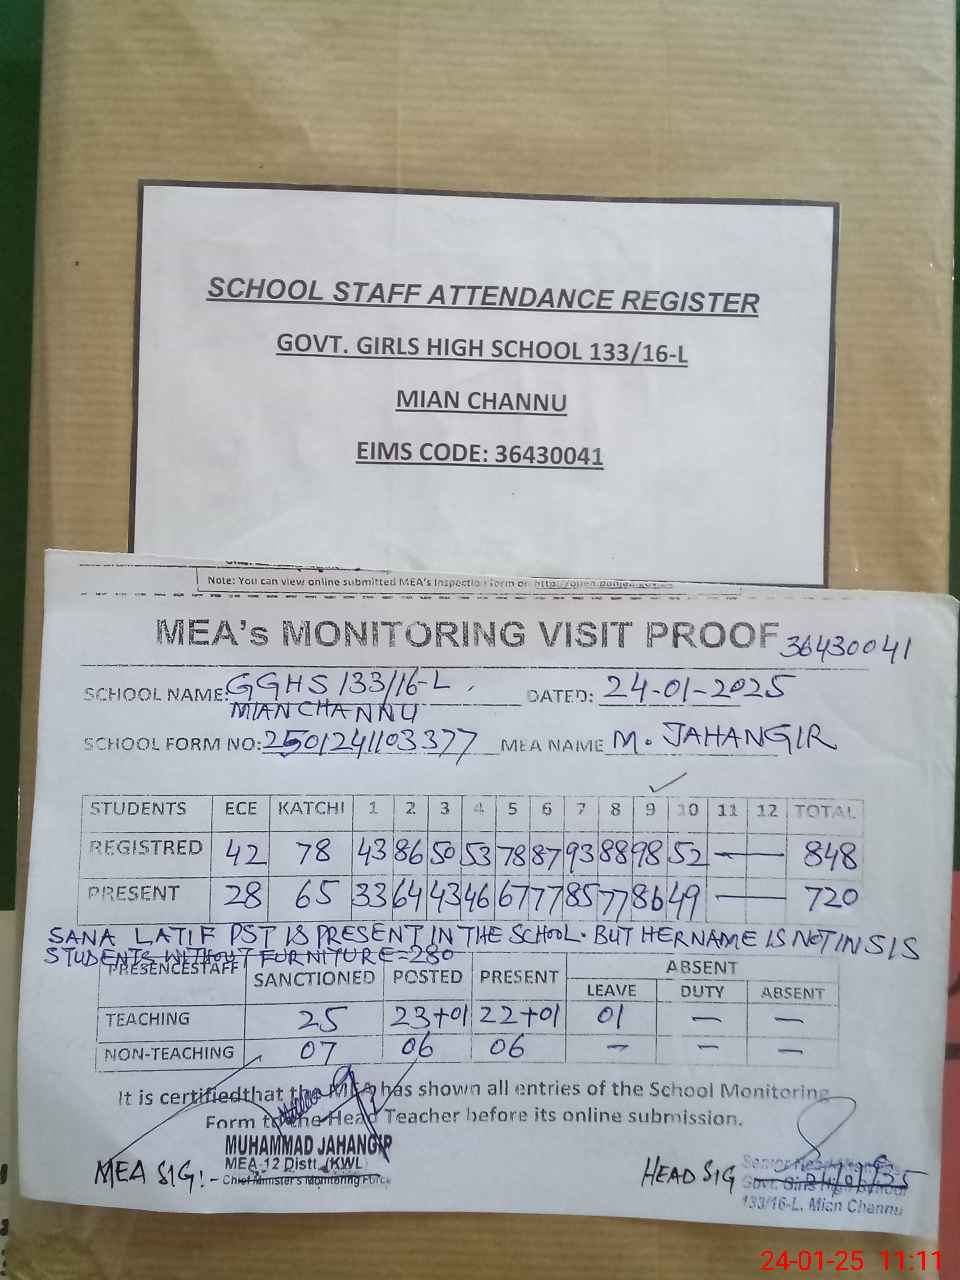 SCHOOL STAFF ATTENDANCE REGISTER
GOVT. GIRLS HIGH SCHOOL 133/16-L
MIAN CHANNU
EIMS CODE: 36430041
Note: You can view online submitted MEA's Inspection Form on
MEA's MONITORING VISIT PROOF 36430041
SCHOOL NAME: GGHS 133/16-L, DATED: 24-01-2025
MIAN CHANNU
SCHOOL FORM NO: 2501241103377 MEA NAME M. JAHANGIR
STUDENTS ECE KATCHI 1 2 3 4 5 6 7 8 9 10 11 12 TOTAL
REGISTRED 42 78 43 86 50 53 78 87 93 88 98 52 — — 848
PRESENT 28 65 33 64 43 46 67 77 85 77 86 49 — — 720
SANA LATIF PST IS PRESENT IN THE SCHOOL. BUT HER NAME IS NOT IN SIS
STUDENTS WITHOUT FURNITURE = 280
PRESENCESTAFF SANCTIONED POSTED PRESENT ABSENT
LEAVE DUTY ABSENT
TEACHING 25 23+01 22+01 01 — —
NON-TEACHING 07 06 06 — — —
It is certifiedthat the MEA has shown all entries of the School Monitoring
Form to the Head Teacher before its online submission.
MUHAMMAD JAHANGIR
MEA-12 Distt. (KWL)
Chief Minister's Monitoring Force
MEA SIG:-
HEAD SIG
Govt. Girls High School
133/16-L, Mian Channu
24-01-25 11:11